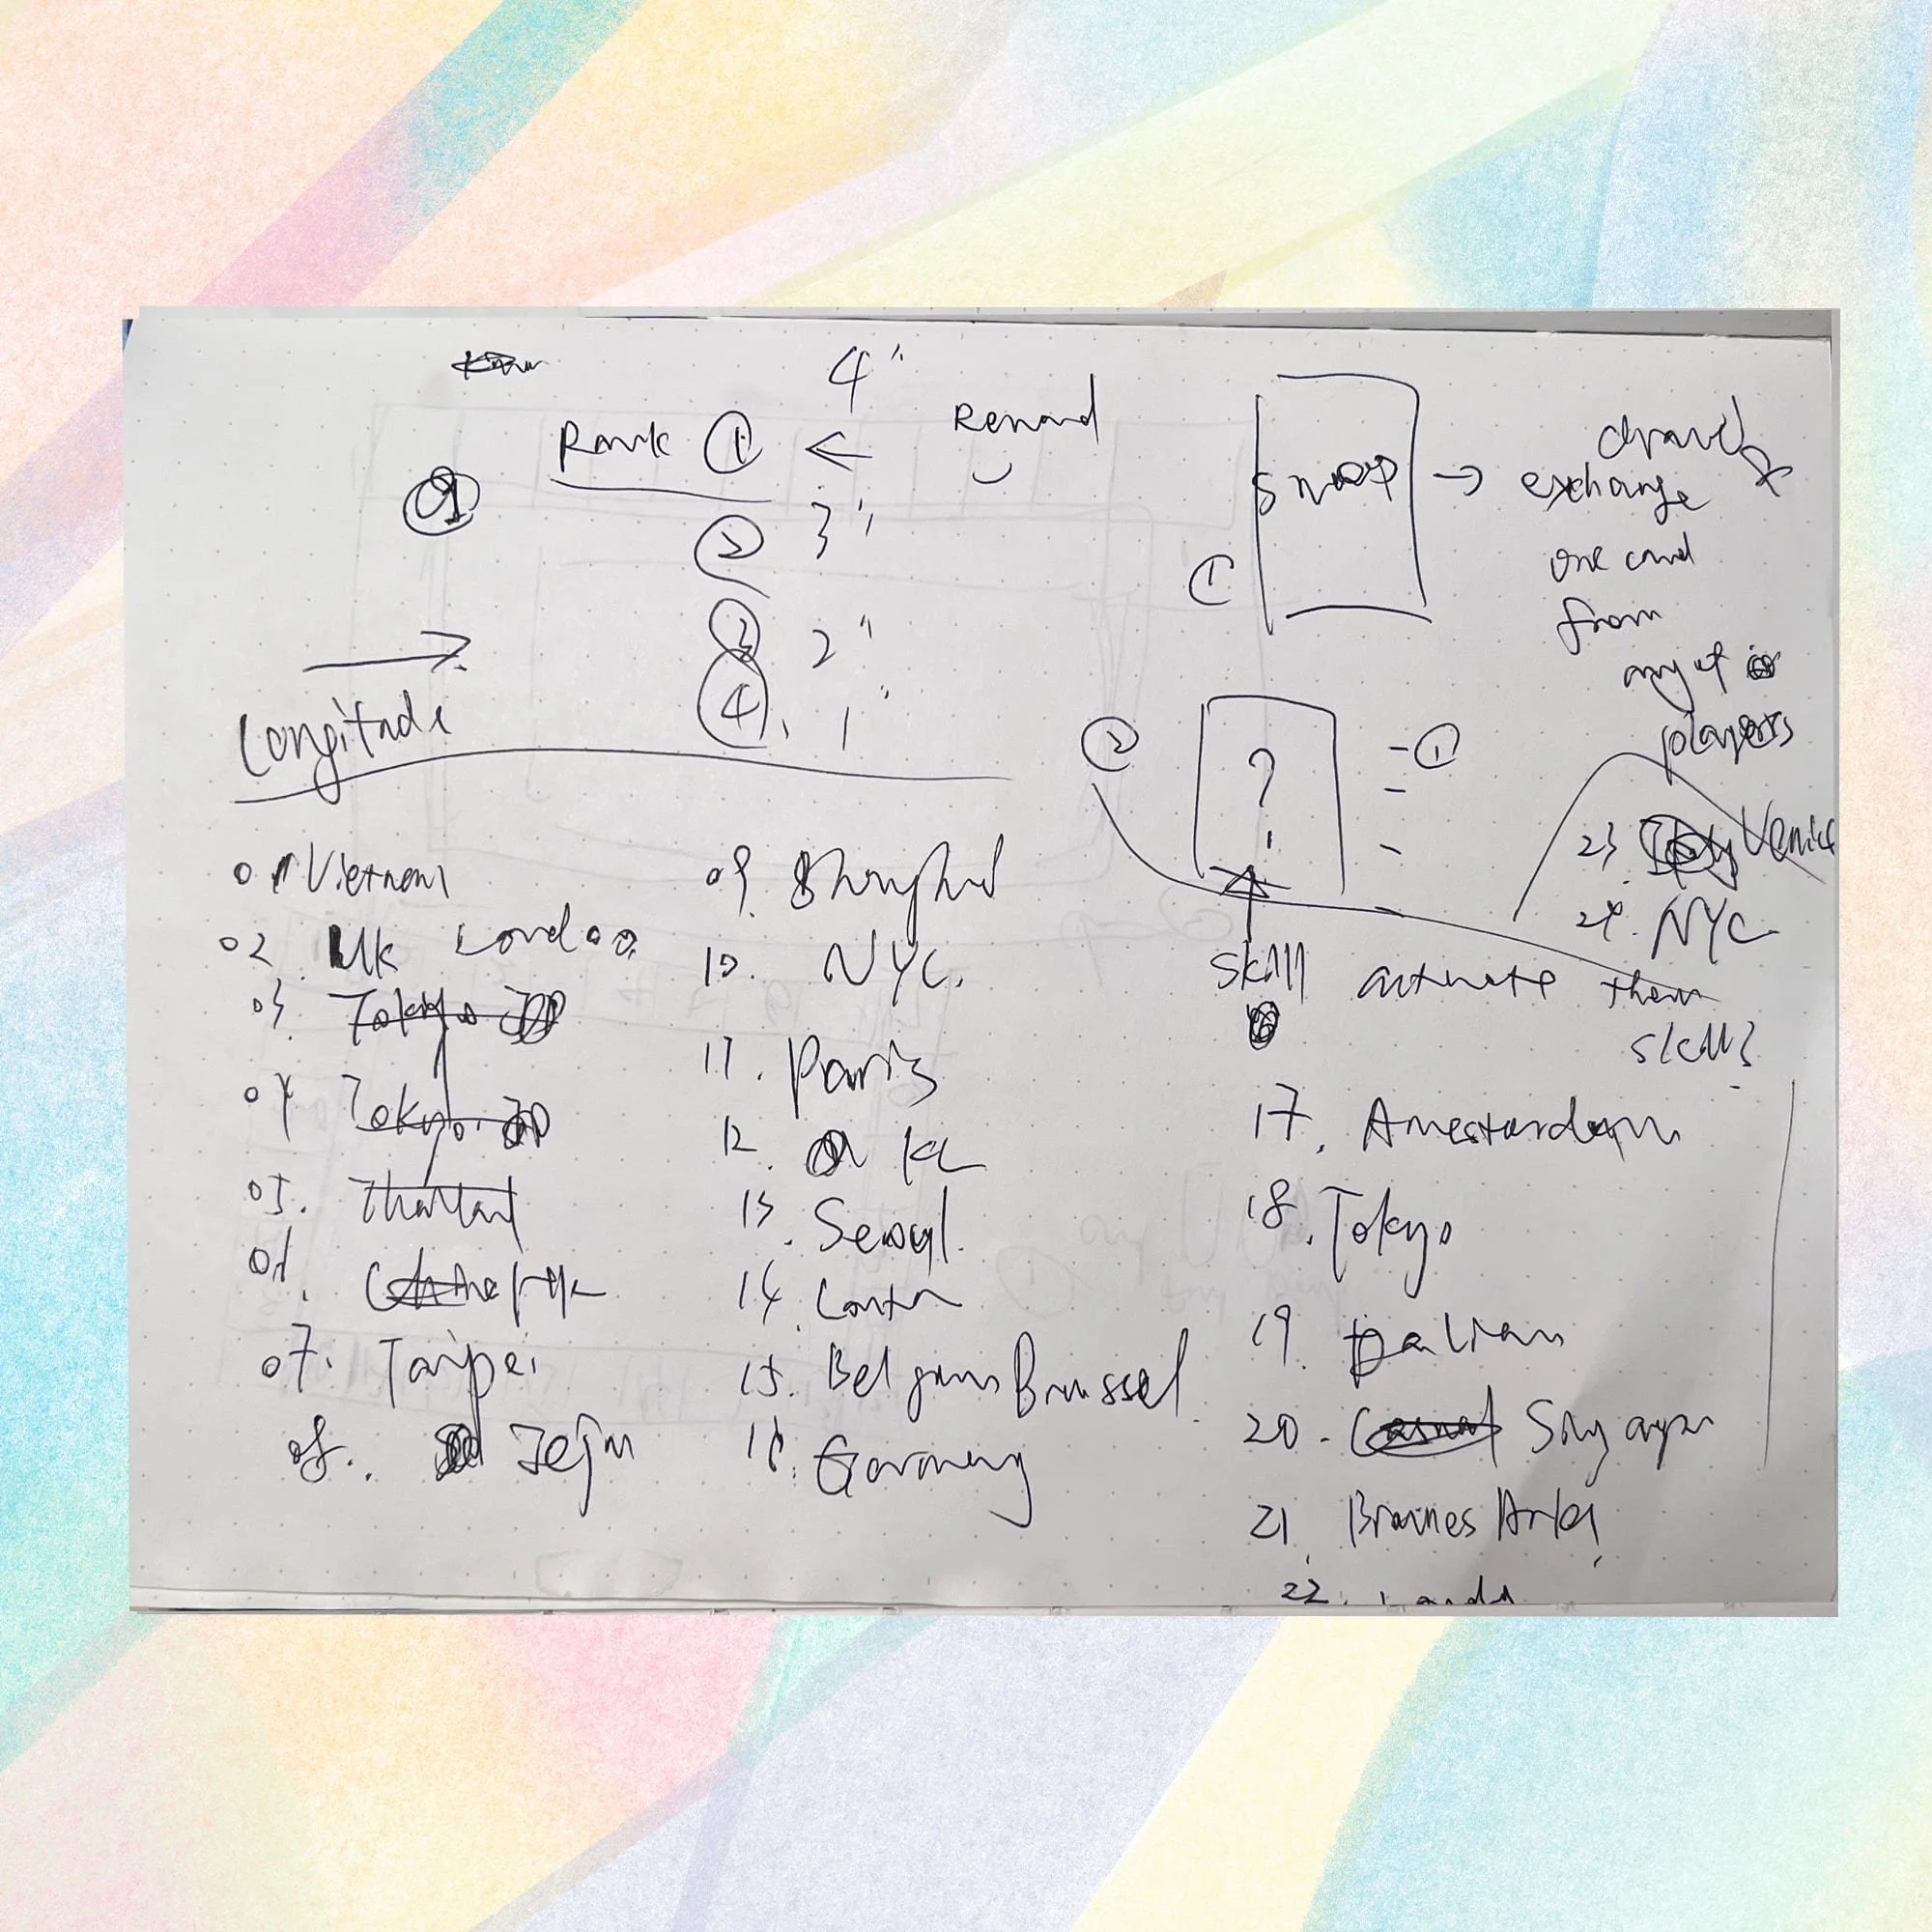 4"
Rank ① ←
② 3"
③ 2"
④ 1"
Longitude
→
01 Vietnam
02 UK London
03 Tokyo
04 Tokyo
05. Thailand
07. Taipei
08. Jeju
09. Shanghai
10. NYC.
11. Paris
12. KL
13. Seoul.
14.
15. Brussel
16.
①
swap → draw &
exchange
one card
from
any of
players
②
?
- ①
-
-
skill activate them
skills
23. Venice
24. NYC
17. Amesterdam
18. Tokyo
19. Dalian
20.
21
22.